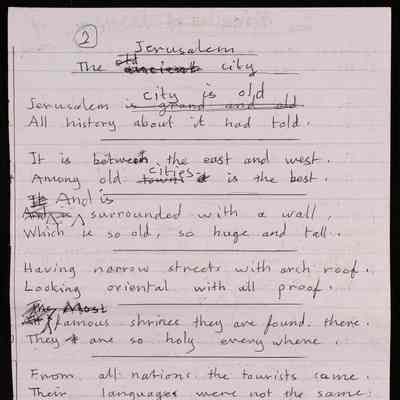 2
Jerusalem
The old city
Jerusalem city is old
All history about it had told.
It is between the east and west.
Among old cities is the best.
And is surrounded with a wall,
Which is so old, so huge and tall.
Having narrow streets with arch roof.
Looking oriental with all proof.
famous shrines they are found there.
They are so holy every where.
From all nations the tourists came.
Their languages were not the same.